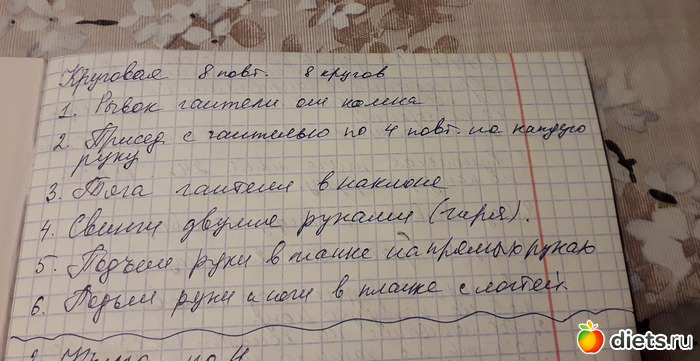 Круговая 8 повт. 8 кругов
1. Рывок гантели от колена
2. Присед с гантелью по 4 повт. на каждую
руку
3. Тяга гантели в наклоне
4. Свинги двумя руками (гиря).
5. Подъем руки в планке на прямых руках
6. Подъем руки и ноги в планке с локтей.
diets.ru